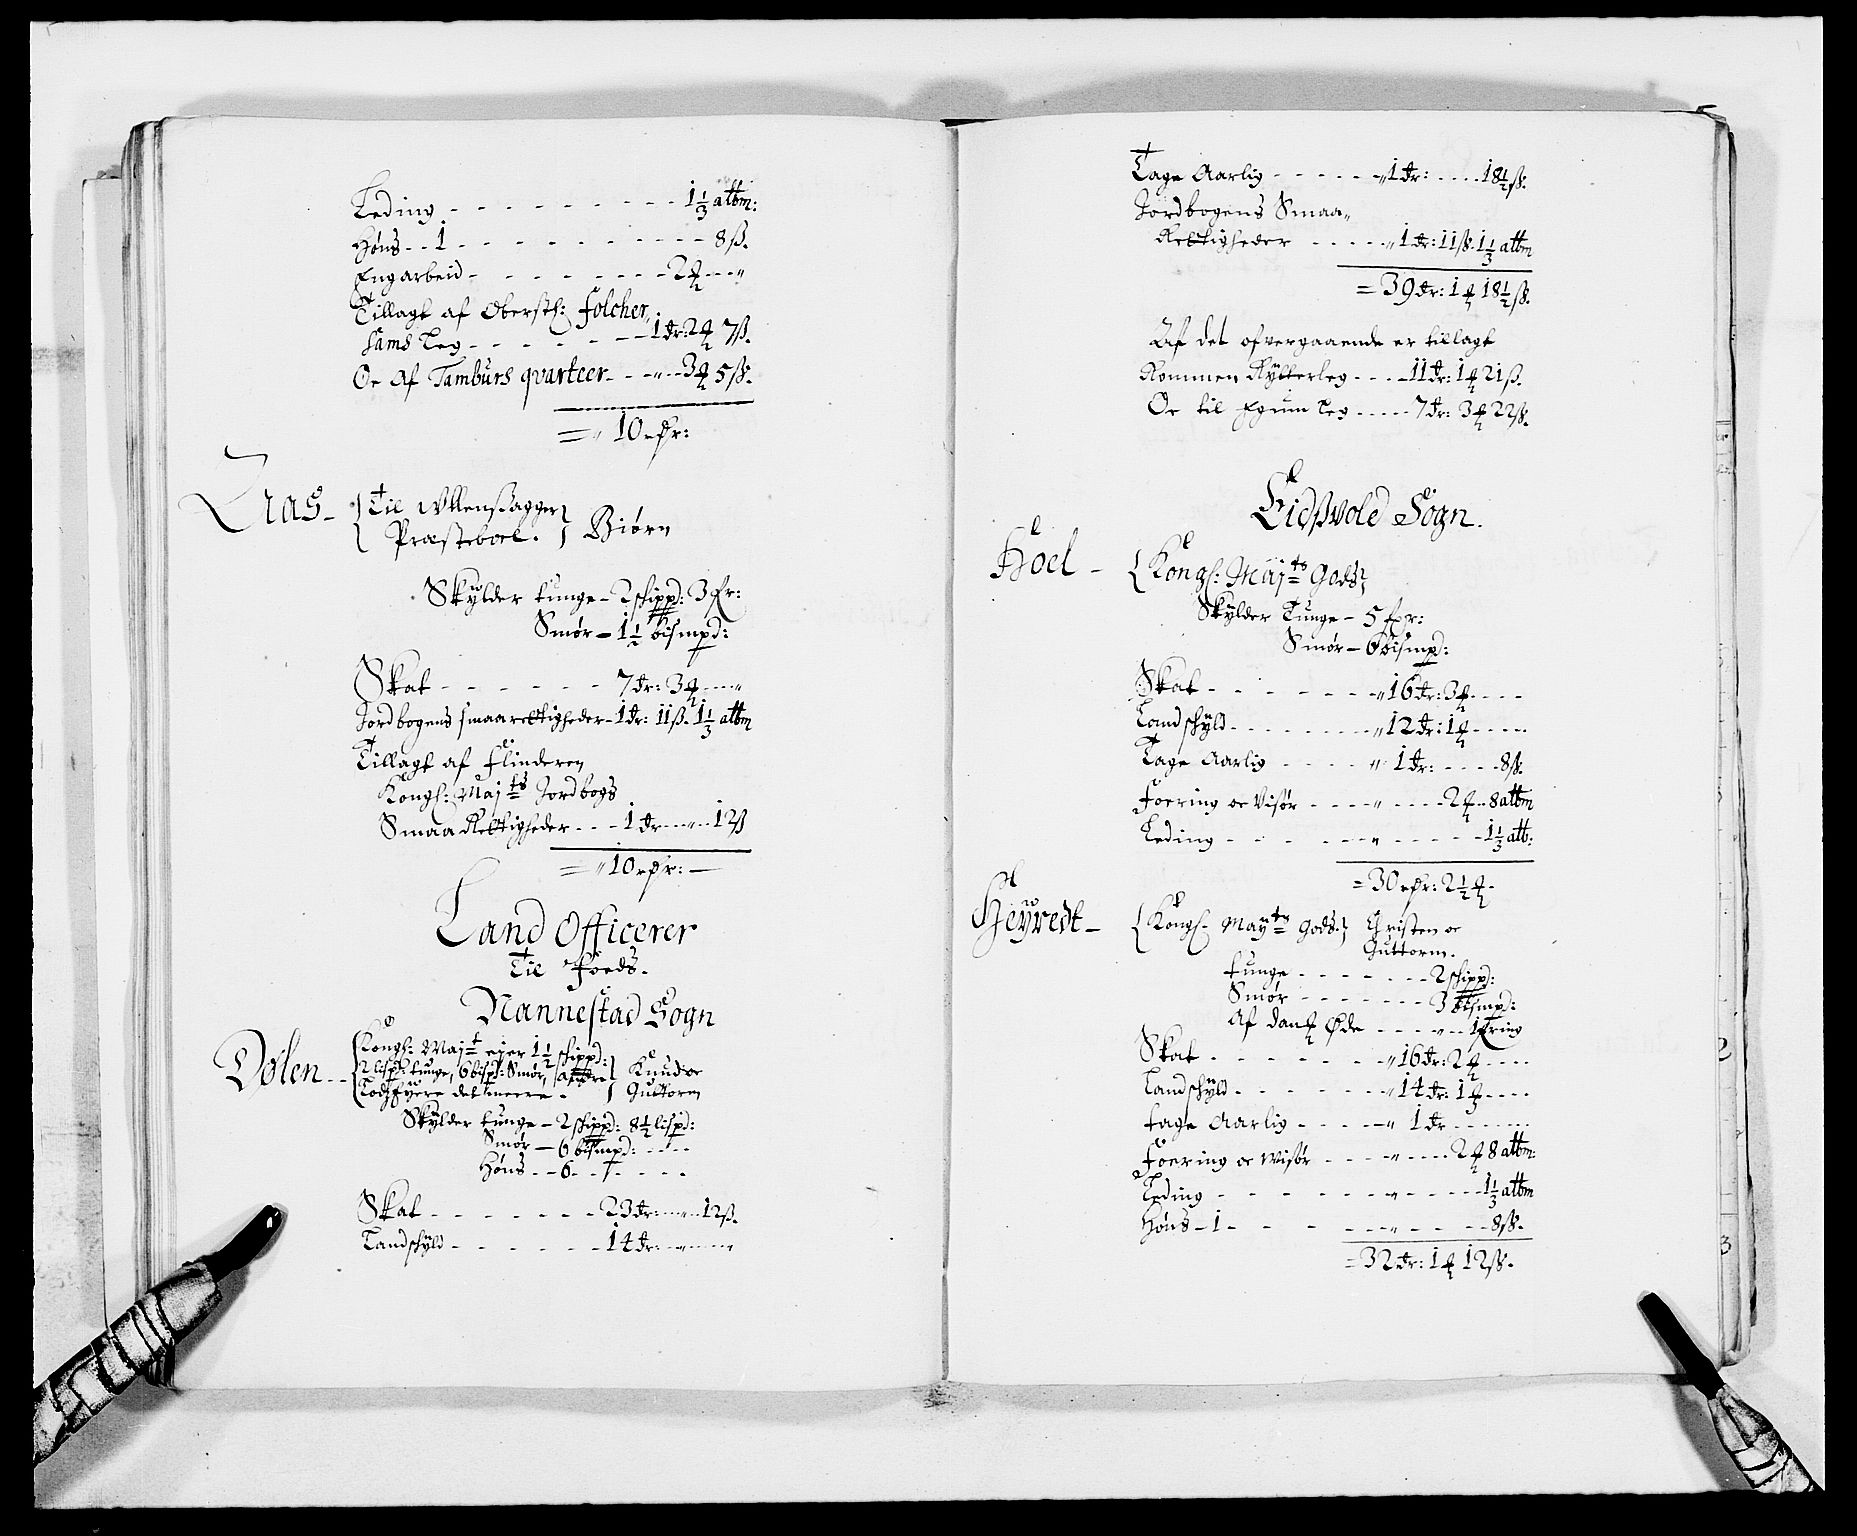 Leding - - - - - - - - - 1 1/3 albm:
Høns - - 1 - - - - - - - - - - 8 ß.
Engarbeid - - - - - - - - 2 ¶ - - "
Tillagt af Oberstl: Folcher,
sams Leg - - - - - - - 1 dr: 2 ¶ 7 ß.
Oc af Tamburs qvarteer - - - " - - 3 ¶ 5 ß.
= " 10 rdr:
Til Ullensagger
Præsteboel. } Biørn
Skylder tunge - 2 schippd: 3 fr:
Smør - 1 1/2 bismpd:
Skat - - - - - - - 7 dr: 3 ¶ - - - "
Jordbogens smaarettigheder - 1 dr: 11 ß. 1 1/3 albm
Tillagt af Flinderen
Kongl: Maj ts Jordbogs
Smaa Rettigheder - - - 1 dr - - " - - 12 ß
= " 10 rdr: -
Land Officerer
Til Foeds.
Nannestad Sogn
Dølen - - { Kongl: Maj t ejer 1 1/2 schippd:
2 lispd: tunge, 6 bispd: Smør, } Knud oc
det meere - } Guttorm
Skylder tunge - 2 schippd: 8 1/2 lispd:
Smør - 6 bismpd: - - -
Høns - - 6 - - - - - -
Skat - - - - - - - 23 dr: - - " - - 12 ß.
Landschyld - - - - - - 14 dr: - - - -
Tage Aarlig - - - - - - " 1 dr: - - - - 18 1/2 ß.
Jordbogens Smaa "
Rettigheder - - - - - " 1 dr: 11 ß. 1 1/3 albm
= 39 dr: 1 ¶ 18 1/2 ß.
Af det ofvergaaende er tillagt
Kommen Rytterleg - - - - 11 dr: 1 ¶ 21 ß.
Oc til Egum Leg - - - - - 7 dr: 3 ¶ 22 ß.
Eidsvold Sogn.
Hoel - { Kongl: Maj ts Gods }
Skylder Tunge - 5 fr:
Smør - 6 bismpd:
Skat - - - - - - - " 16 dr: 3 ¶ - - - -
Landschyld - - - - - - - - " 12 dr: 1 ¶ - - - - -
Tage Aarlig - - - - - " 1 dr: - - - - 8 ß.
Foering oc Visør - - - - " - - - - 2 ¶ - 8 albm
Leding - - - - - - " - - - - - - 1 1/3 alb:
= 30 rdr: 2 1/2 ¶ -
Heyredt - { Kongl- May ts Gods. } Christen oc
Guttorm.
tunge - - - - - - - - 2 schippd:
Smør - - - - - - - 3 bismpd:
Af Øde - - - - " - -
Skat - - - - - - - " 16 dr: 2 ¶ - - - -
Landschyld - - - - - - - - " 14 dr: 1 ¶ - - - -
tage Aarlig - - - - - " 1 dr - - - - - -
Foering oc Wisør - - - - " - - - - 2 ¶ 8 albm:
Leding - - - - - - - - " - - - - - 1 1/3 albm
Høns - 1 - - - - - - " - - - - - 8 ß.
= 32 dr: 1 ¶ 12 ß.